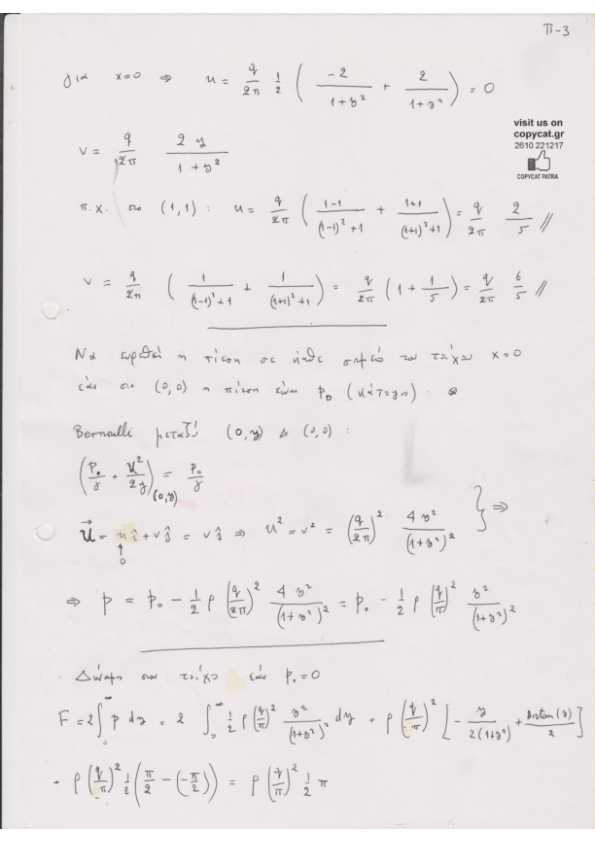 Π-3
για x=0 ⇒ u = q/2π 1/2 ( -2/(1+y²) + 2/(1+y²) ) = 0
visit us on
copycat.gr
2610 221217
COPYCAT PATRA
v = q/2π 2y/(1+y²)
π.χ. στο (1,1) : u = q/2π ( (1-1)/((1-1)²+1) + (1+1)/((1+1)²+1) ) = q/2π 2/5 //
v = q/2π ( 1/((1-1)²+1) + 1/((1+1)²+1) ) = q/2π (1 + 1/5) = q/2π 6/5 //
Να ευρεθεί η πίεση σε κάθε σημείο του τοίχου x=0
εάν στο (0,0) η πίεση είναι P₀ (κάτοψη).
Bernoulli μεταξύ (0,y) & (0,0) :
(P₀/γ + U²/2g)(0,y) = P₀/γ
U⃗ = uî + vĵ = vĵ ⇒ U² = v² = (q/2π)² 4y²/(1+y²)² } ⇒
0
⇒ p = p₀ - 1/2 ρ (q/2π)² 4y²/(1+y²)² = p₀ - 1/2 ρ (q/π)² y²/(1+y²)²
· Δύναμη στον τοίχο εάν p₀=0
F = 2∫₀^∞ p dy = 2 ∫₀^∞ 1/2 ρ (q/π)² y²/(1+y²)² dy = ρ (q/π)² [ - y/2(1+y²) + Arctan(y)/2 ]
= ρ (q/π)² 1/2 (π/2 - (-π/2)) = ρ (q/π)² 1/2 π